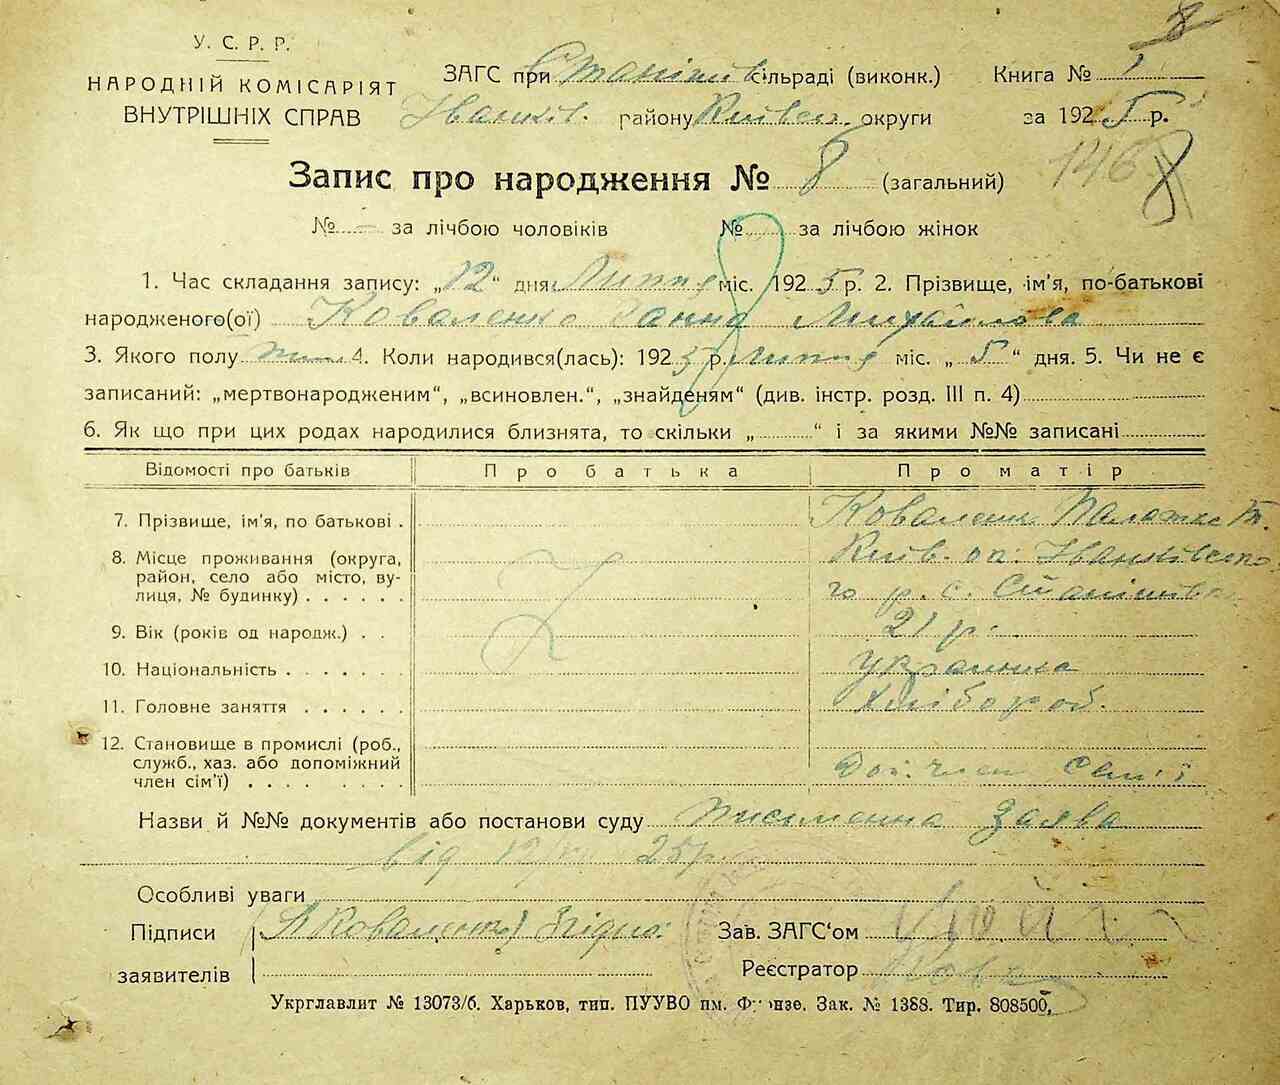 У. С. Р. Р.
НАРОДНІЙ КОМІСАРІЯТ
ВНУТРІШНІХ СПРАВ
ЗАГС при Станішів сільраді (виконк.) Книга № 1
Іванків. району Київск. округи за 1925 р.
1468
Запис про народження № 8 (загальний)
№ – за лічбою чоловіків № за лічбою жінок
1. Час складання запису: „12“ дня Липня міс. 1925 р. 2. Прізвище, ім'я, по-батькові
народженого(ої) Коваленко Ганна Михайлова
3. Якого полу жін. 4. Коли народився(лась): 1925 р. Липня міс. „5“ дня. 5. Чи не є
записаний: „мертвонародженим“, „всиновлен.“, „знайденям“ (див. інстр. розд. III п. 4)
6. Як що при цих родах народилися близнята, то скільки „ “ і за якими №№ записані
Відомості про батьків Про батька Про матір
7. Прізвище, ім'я, по батькові . Коваленко
8. Місце проживання (округа, Київ. ок. Іванківсько-
район, село або місто, ву-
лиця, № будинку) . . . . . . го р. с. Станішівка
9. Вік (років од народж.) . . 21 р.
10. Національність . . . . . . . украинка
11. Головне заняття . . . . . . Хлібороб.
12. Становище в промислі (роб.,
служб., хаз. або допоміжний
член сім'ї) . . . . . . . . Доп. член семії
Назви й №№ документів або постанови суду письменна заява
від 12/VII 25 р.
Особливі уваги
Підписи Коваленко Зав. ЗАГС'ом
заявителів Реєстратор
Укрглавлит № 13073/б. Харьков, тип. ПУУВО им. Фрунзе. Зак. № 1388. Тир. 808500.